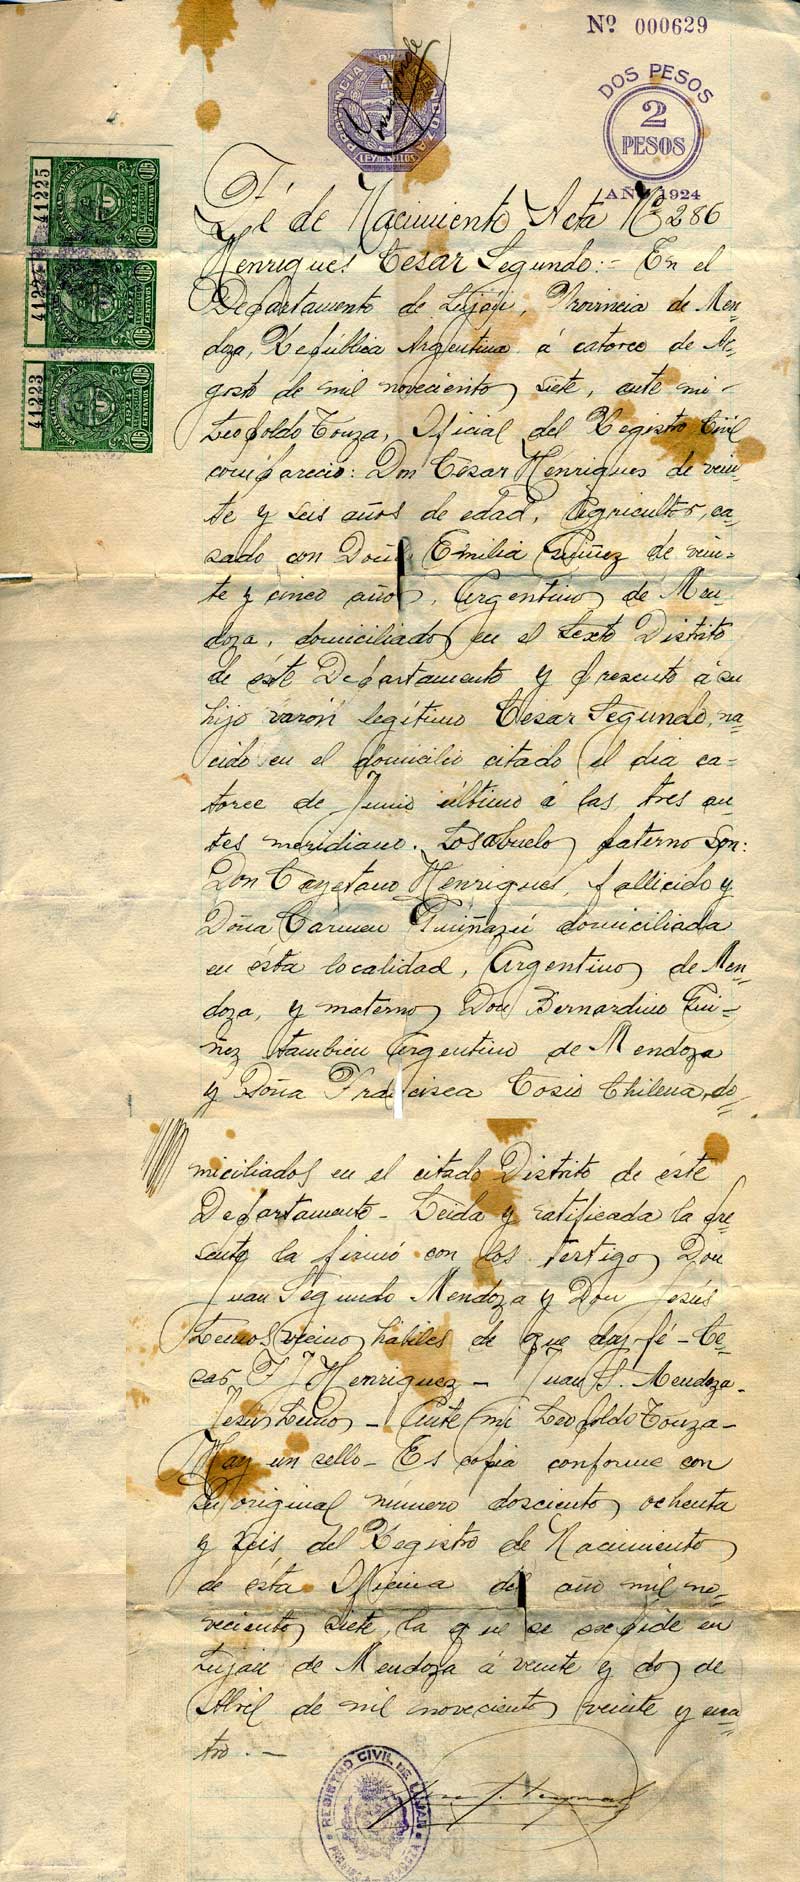 Nº 000629
PROVINCIA DE MENDOZA
LEY DE SELLOS
DOS PESOS
2
PESOS
AÑO 1924
41225
41224
41223
Fé de Nacimiento Acta Nº 286
Henriques Cesar Segundo:- En el
Departamento de Luján, Provincia de Men-
doza, República Argentina á catorce de A-
gosto de mil novecientos siete, ante mi-
Leopoldo Touza, Oficial del Registro Civil
compareció: Don César Henriques de vein-
te y seis años de edad, Agricultor, ca-
sado con Doña Emilia Guiñez de vein-
te y cinco años, Argentinos de Men-
doza, domiciliados en el Sexto Distrito
de éste Departamento y presento á su
hijo varón legítimo Cesar Segundo, na-
cido en el domicilio citado el dia ca-
torce de Junio último á las tres an-
tes meridiano. Los abuelos paternos son:
Don Cayetano Henriques, fallicido y
Doña Cármen Guiñazú domiciliada
en ésta localidad, Argentinos de Men-
doza, y maternos Don Bernardino Gui-
ñez tambien Argentino de Mendoza
y Doña Francisca Cosio Chilena, do-
miciliados en el citado Distrito de éste
Departamento - Leida y ratificada la pre-
sente la firmó con los testigos Don
Juan Segundo Mendoza y Don Jesús
Lemos vecinos hábiles de que doy fé - Ce-
sar F J Henriquez - Juan S. Mendoza -
Jesús Lemos - Ante mi Leopoldo Touza -
Hay un sello - Es copia conforme con
su original número doscientos ochenta
y seis del Registro de Nacimientos
de ésta Oficina del año mil no-
vecientos siete, la que se expide en
Luján de Mendoza á veinte y dos de
Abril de mil novecientos veinte y cua-
tro. -
REGISTRO CIVIL DE LUJAN
PROVINCIA MENDOZA